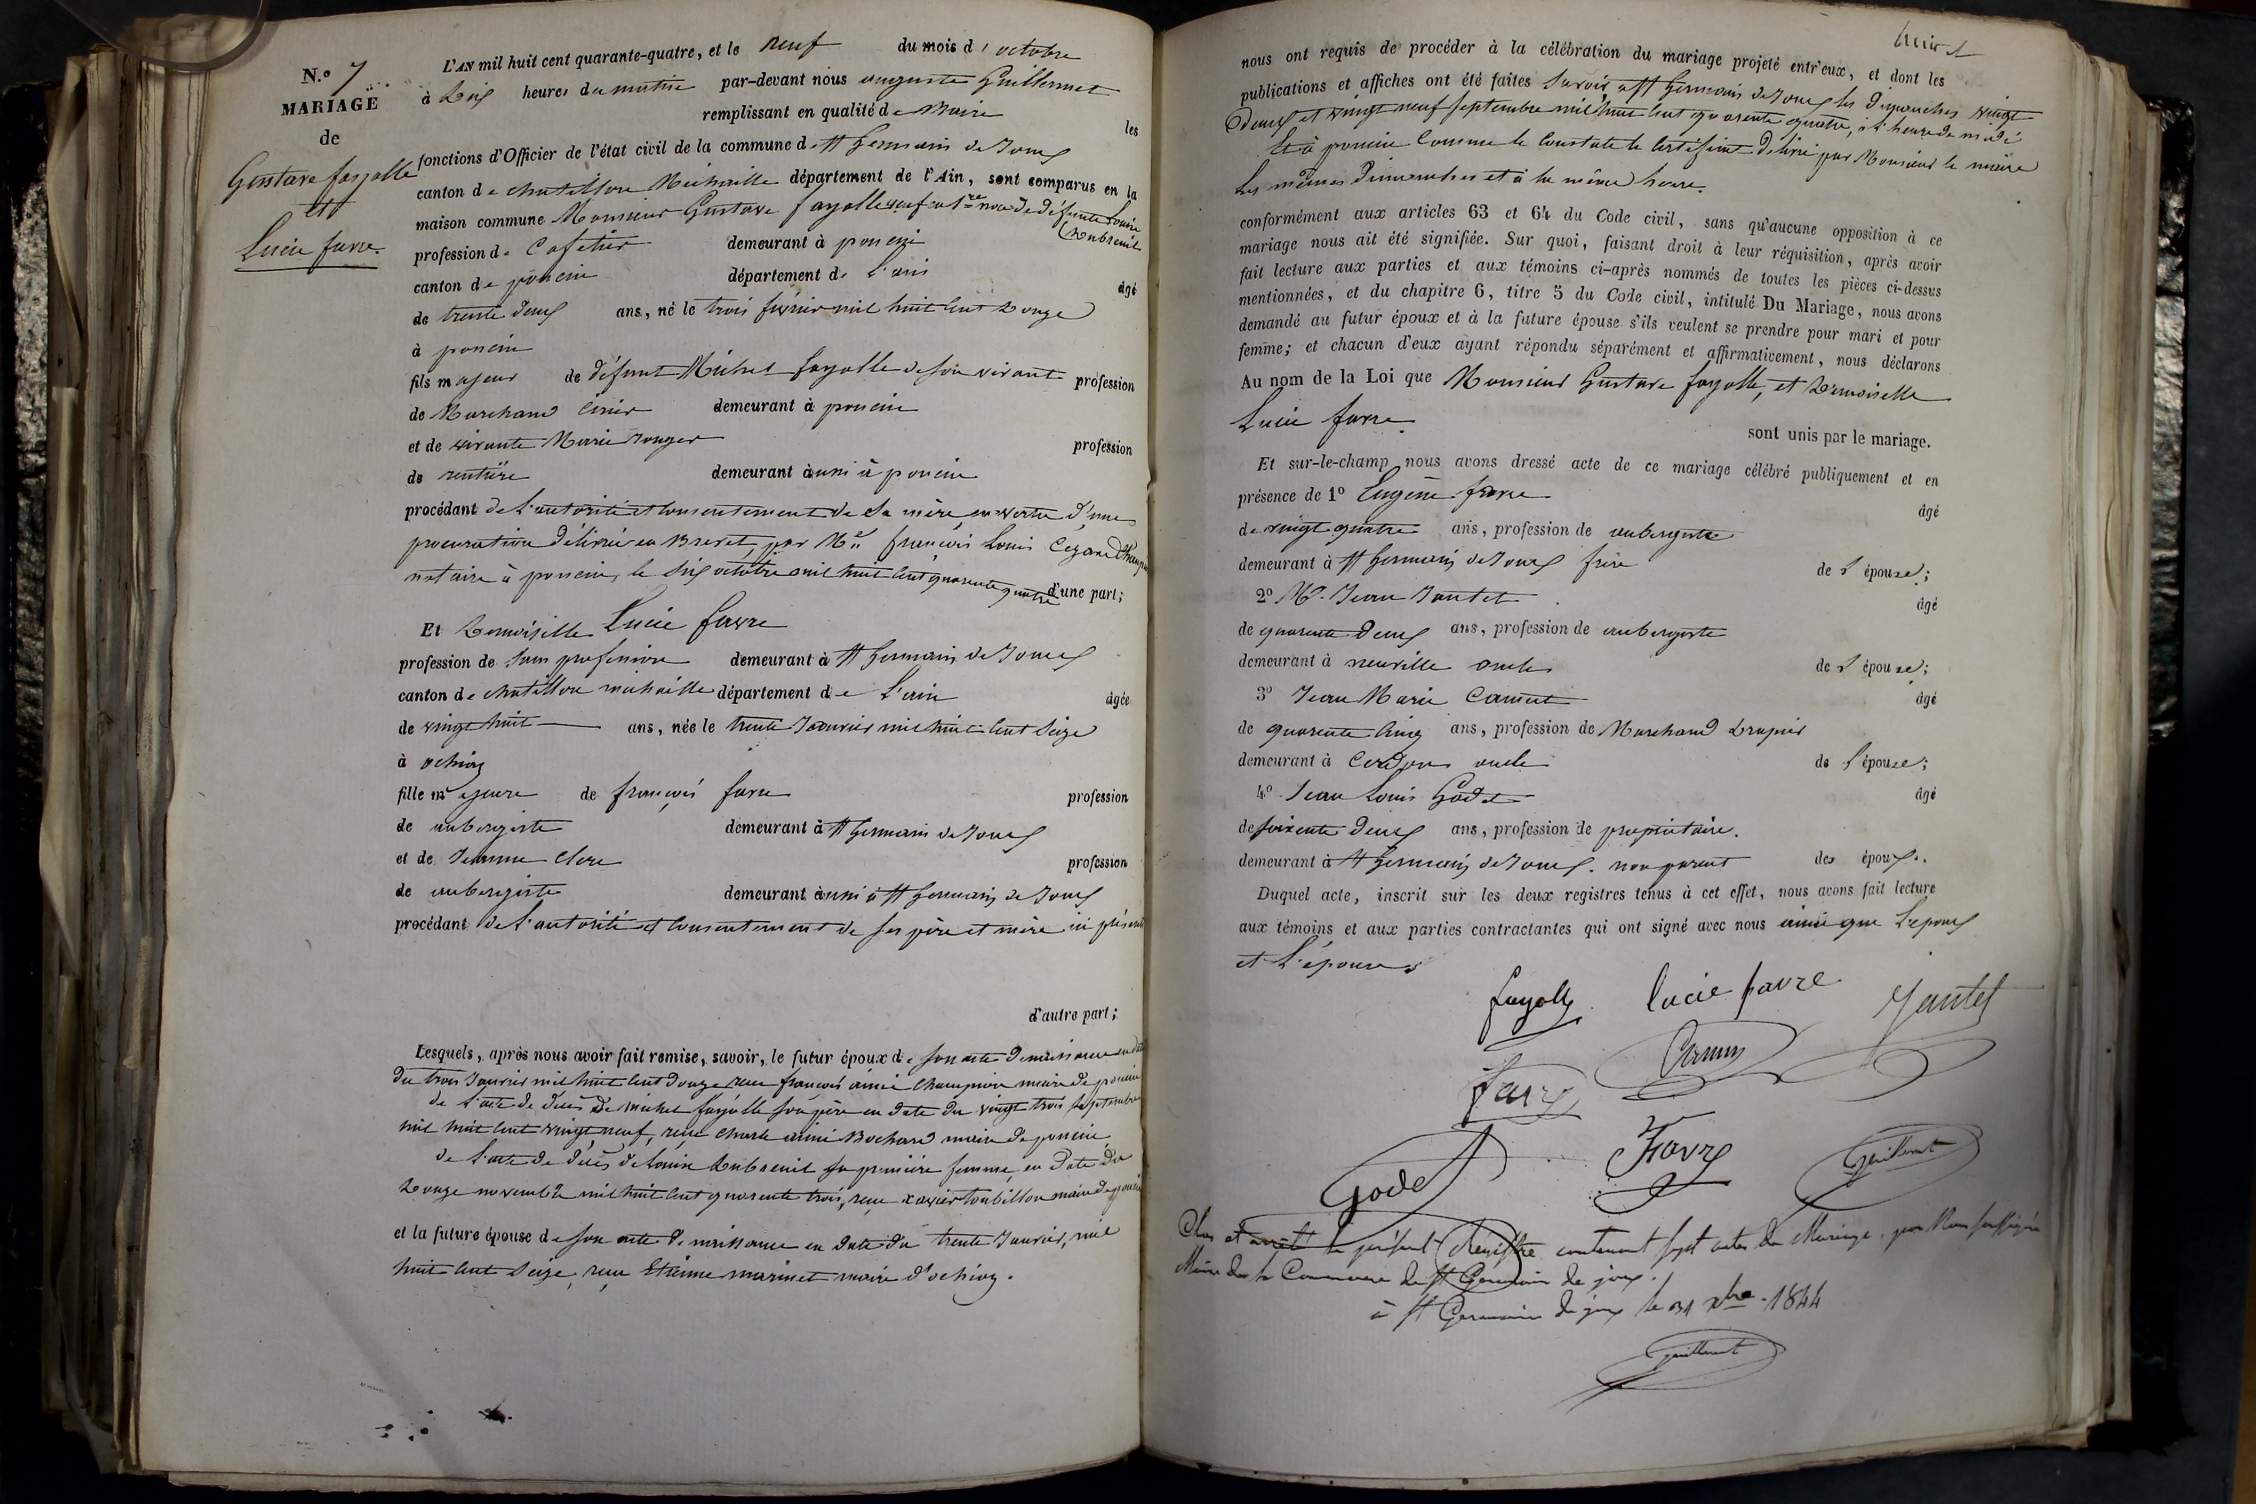 N.º 7
MARIAGE
de
Gustave fayolle
et
Lucie favre.
L'AN mil huit cent quarante-quatre, et le neuf du mois d'octobre
à dix heures du matin par-devant nous auguste Guillermet
remplissant en qualité de Maire les
fonctions d'Officier de l'état civil de la commune de St Germain de Joux
canton de chatillon Michaille département de l'Ain, sont comparus en la
maison commune Monsieur Gustave fayolle veuf en 1re noce de défunte Louise Dubreuil
profession de Cafetier demeurant à poncin
canton de poncin département de L'ain âgé
de trente deux ans, né le trois février mil huit cent douze
à poncin
fils majeur de défunt Michel fayolle de son vivant profession
de Marchand Cirier demeurant à poncin
et de vivante Marie Rouger profession
de rentière demeurant aussi à poncin
procédant de l'autorité et consentement de sa mère en vertu d'une
procuration délivrée en Brevet, par Me françois Louis Cezard
notaire à poncin, le six octobre mil huit cent quarante quatre d'une part;
Et Demoiselle Lucie favre
profession de sans profession demeurant à St Germain de Joux
canton de chatillon michaille département de L'ain âgée
de vingt huit ans, née le trente Janvier mil huit cent seize
à ochiaz
fille majeure de françois favre profession
de aubergiste demeurant à St Germain de Joux
et de Jeanne Clerc profession
de aubergiste demeurant aussi à St Germain de Joux
procédant de l'autorité et consentement de ses père et mère ici présent
d'autre part;
Lesquels, après nous avoir fait remise, savoir, le futur époux de son acte de naissance en date
du trois Janvier mil huit cent douze reçu françois aimé Champion maire de poncin
de l'acte de décès de michel fayolle son père en date du vingt trois septembre
mil huit cent vingt neuf, reçu Charle aimé Bochard maire de poncin
de l'acte de décès de Louise Dubreuil sa première femme, en date du
douze novembre mil huit cent quarante trois, reçu xavier toubillon maire de poncin
et la future épouse de son acte de naissance en date du trente Janvier, mil
huit cent seize, reçu Etienne marinet maire d'ochiaz.
nous ont requis de procéder à la célébration du mariage projeté entr'eux, et dont les
publications et affiches ont été faites savoir à St Germain de Joux les dimanches vingt
deux et vingt neuf septembre mil huit cent quarante quatre, à l'heure de midi
Et à poncin comme le constate le certificat délivré par Monsieur le maire
les mêmes dimanches et à la même heure.
conformément aux articles 63 et 64 du Code civil, sans qu'aucune opposition à ce
mariage nous ait été signifiée. Sur quoi, faisant droit à leur réquisition, après avoir
fait lecture aux parties et aux témoins ci-après nommés de toutes les pièces ci-dessus
mentionnées, et du chapitre 6, titre 5 du Code civil, intitulé Du Mariage, nous avons
demandé au futur époux et à la future épouse s'ils veulent se prendre pour mari et pour
femme; et chacun d'eux ayant répondu séparément et affirmativement, nous déclarons
Au nom de la Loi que Monsieur Gustave fayolle, et Demoiselle
Lucie favre.
sont unis par le mariage.
Et sur-le-champ nous avons dressé acte de ce mariage célébré publiquement et en
présence de 1º Eugène favre âgé
de vingt quatre ans, profession de aubergiste
demeurant à St Germain de Joux frère de L'épouse;
2º Mr. Jean Jantet âgé
de quarante deux ans, profession de aubergiste
demeurant à neuville oncle de L'épouse;
3º Jean Marie Camut âgé
de quarante cinq ans, profession de Marchand Drapier
demeurant à Cerdon oncle de l'épouse;
4º Jean Louis Godet âgé
de soixante deux ans, profession de propriétaire.
demeurant à St Germain de Joux. non parent des époux.
Duquel acte, inscrit sur les deux registres tenus à cet effet, nous avons fait lecture
aux témoins et aux parties contractantes qui ont signé avec nous ainsi que L'époux
et L'épouse
fayolle lucie favre Jantet
Camut
Favre
Godet Favre Guillermet
Clos et arrêté le présent Registre contenant sept actes de Mariage. par Nous soussigné
Maire de la Commune de St Germain de joux.
à St Germain de joux le 31 xbre 1844
Guillermet